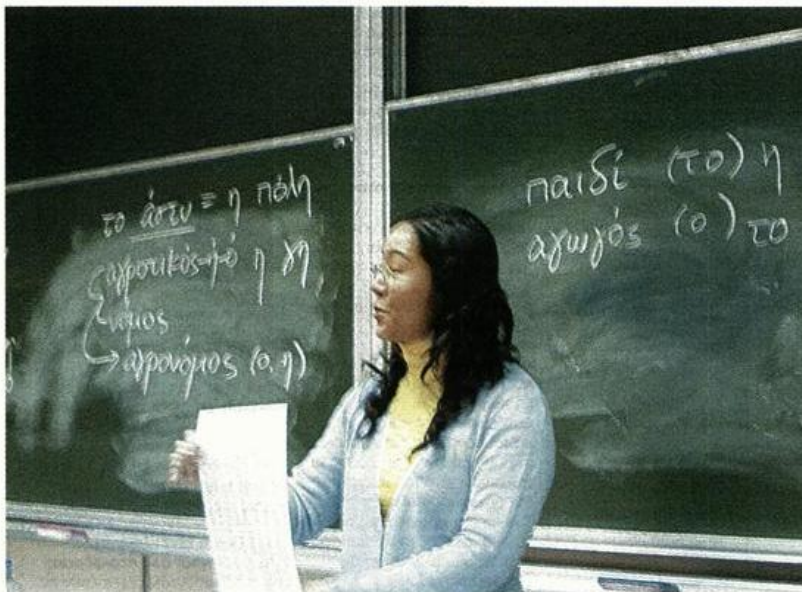 το άστυ = η πόλη
αγροτικός-ή-ό η γη
νόμος
→ αγρονόμος (ο, η)
παιδί (το) ή
αγωγός (ο) το